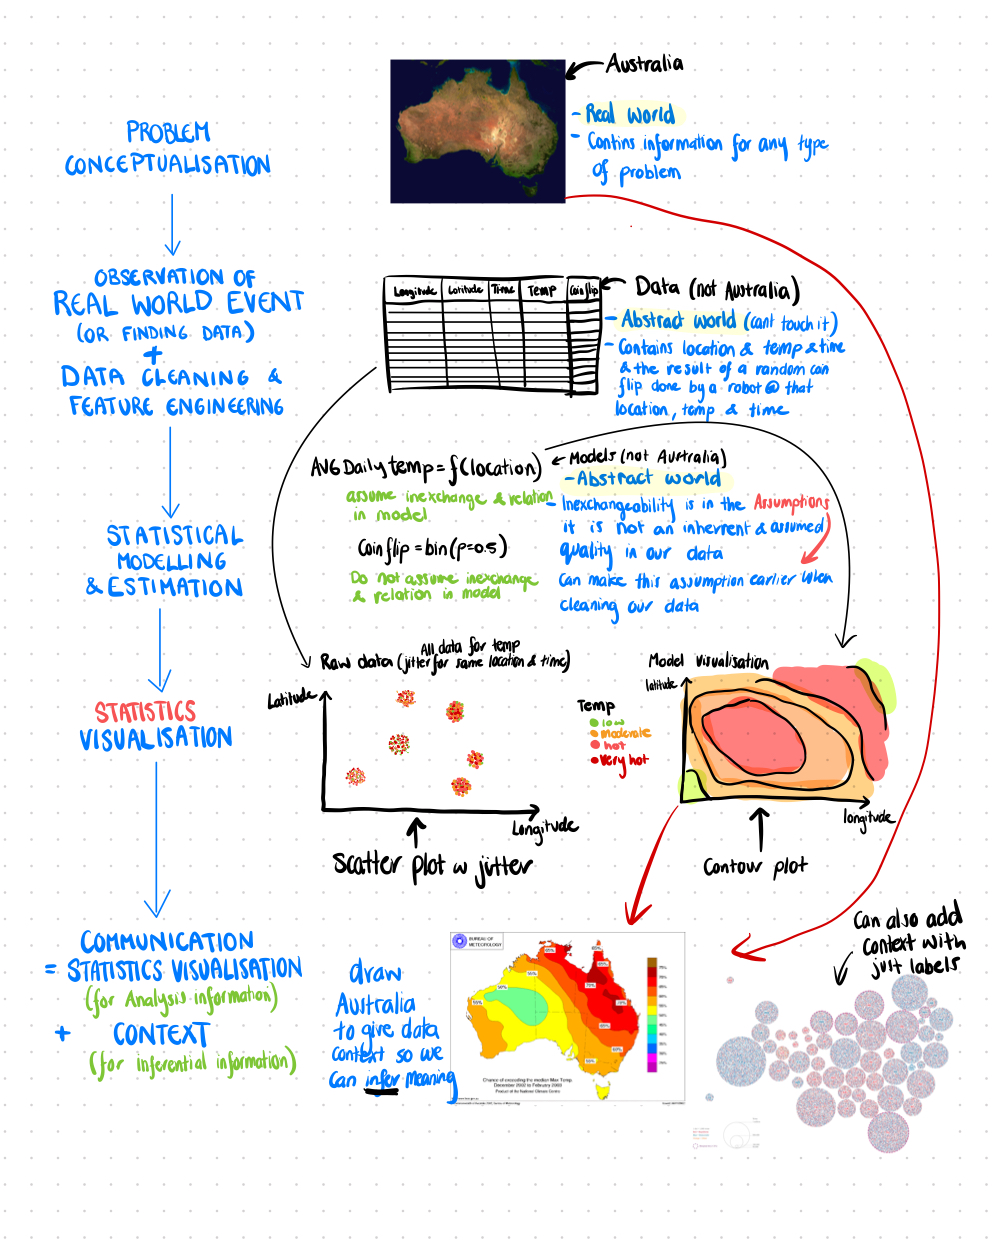 Australia
- Real world
- Contins information for any type
of problem
PROBLEM
CONCEPTUALISATION
OBSERVATION OF
REAL WORLD EVENT
(OR FINDING DATA)
+
DATA CLEANING &
FEATURE ENGINEERING
Longitude Latitude Time Temp Coin flip
Data (not Australia)
- Abstract world (cant touch it)
- Contains location & temp & time
& the result of a random coin
flip done by a robot @ that
location, temp & time
AVG Daily temp = f(location)
assume inexchange & relation
in model
Coin flip = bin(p=0.5)
Do not assume inexchange
& relation in model
Models (not Australia)
- Abstract world
- Inexchangeability is in the Assumptions
it is not an inherrent & assumed
quality in our data
Can make this assumption earlier when
cleaning our data
STATISTICAL
MODELLING
& ESTIMATION
All data for temp
Raw data (jitter for same location & time)
Latitude
Longitude
Scatter plot w jitter
Temp
low
moderate
hot
very hot
Model visualisation
latitude
longitude
Contour plot
STATISTICS
VISUALISATION
COMMUNICATION
= STATISTICS VISUALISATION
(for Analysis information)
+ CONTEXT
(for inferential information)
draw
Australia
to give data
context so we
can infer meaning
BUREAU OF
METEOROLOGY
Chance of exceeding the median Max Temp
December 2002 to February 2003
Product of the National Climate Centre
Can also add
context with
just labels